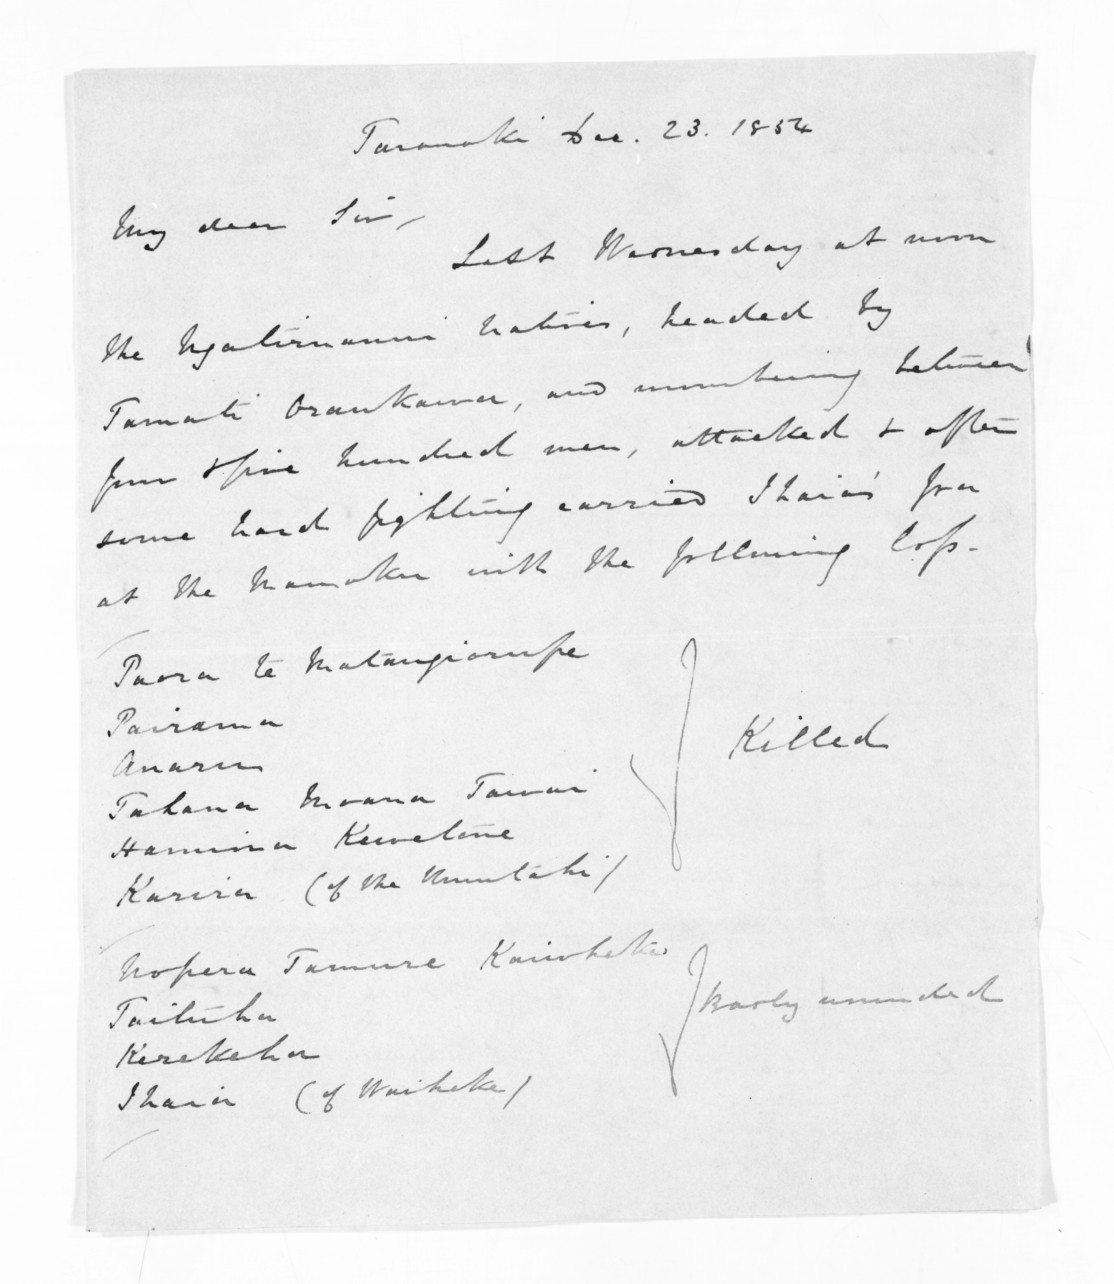 Taranaki Dec. 23. 1854
My dear Sir,
Last Wednesday at noon
the Ngatiruanui natives, headed by
Tamati Oraukawa, and numbering between
four & five hundred men, attacked & after
some hard fighting carried Ihaia's Pa
at the Mamaku with the following loss.
Paora te Matangiorupe
Pairama
Anaru
Tahana Moana Tawai
Hamiora Kewetone
Karira (of the Numutahi)
Nopera Tamure Kaiwheke
Taituha
Kerekeha
Ihaia (of Waiheke)
Killed
Badly wounded